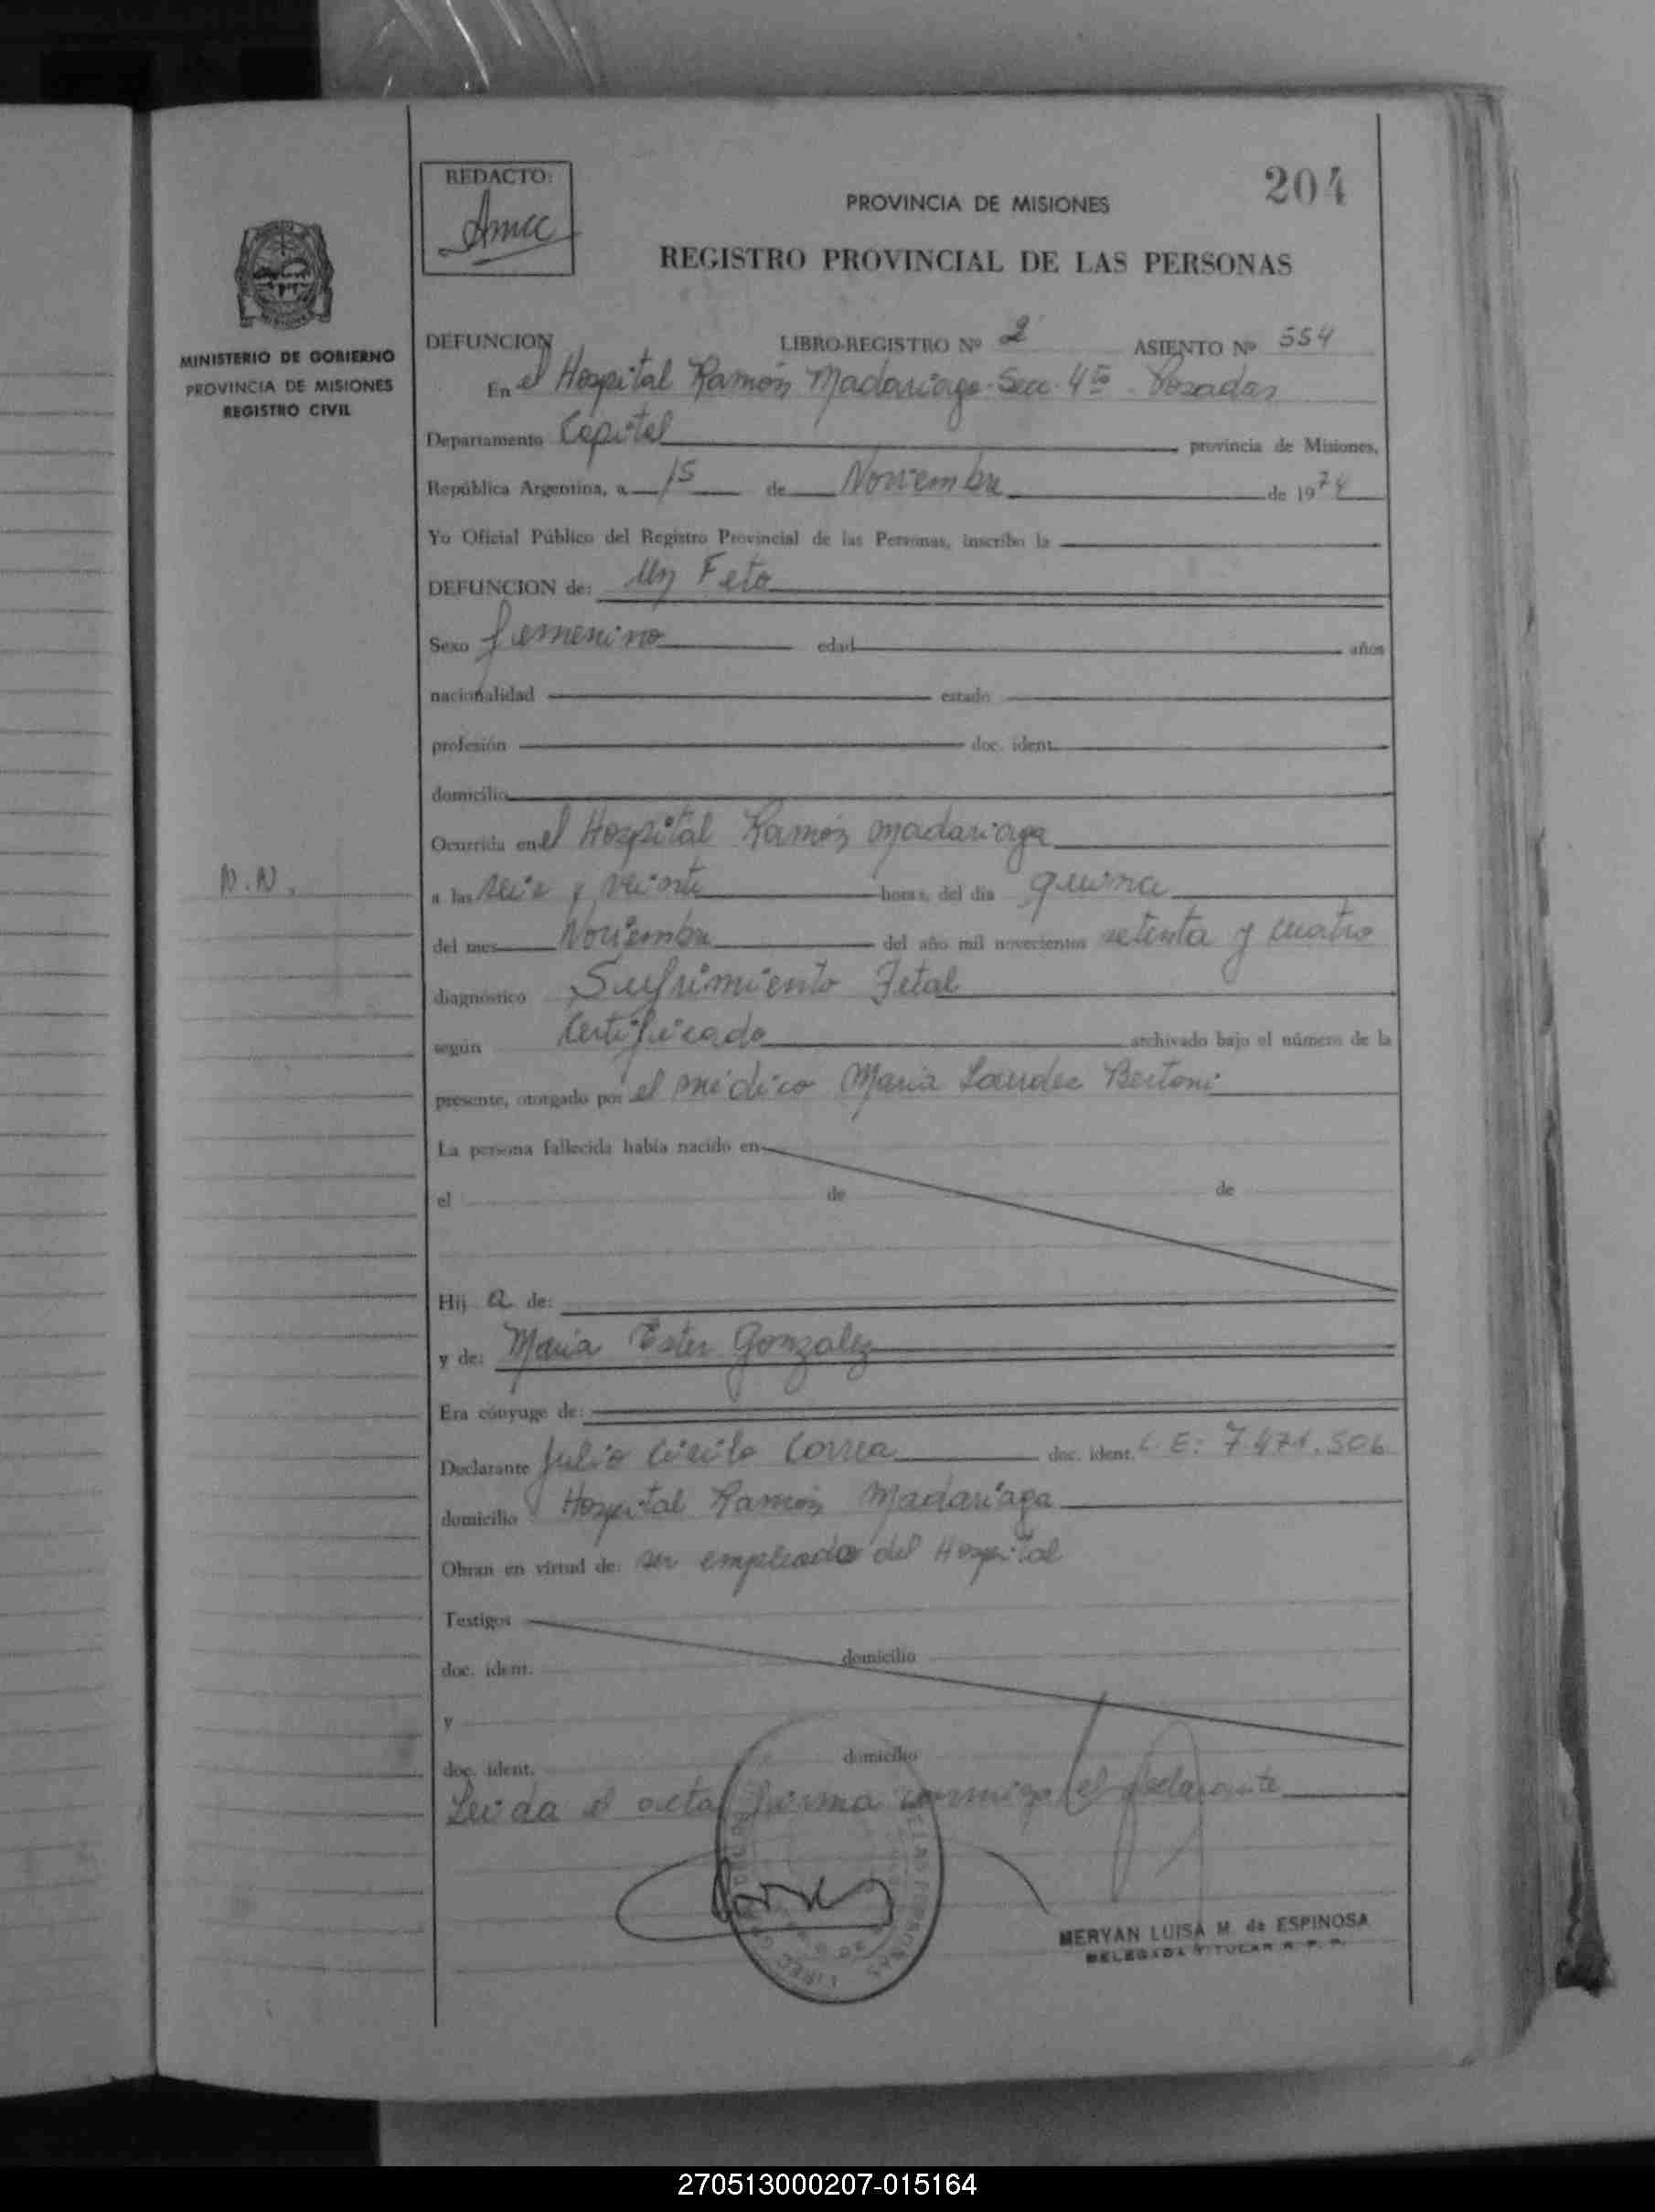 204
REDACTO:
Amcc
PROVINCIA DE MISIONES
REGISTRO PROVINCIAL DE LAS PERSONAS
MINISTERIO DE GOBIERNO
PROVINCIA DE MISIONES
REGISTRO CIVIL
DEFUNCION LIBRO-REGISTRO Nº 2 ASIENTO Nº 554
En el Hospital Ramón Madariaga - Secc. 4ta - Posadas
Departamento Capital provincia de Misiones,
República Argentina, a 15 de Noviembre de 1974
Yo Oficial Público del Registro Provincial de las Personas, inscribo la
DEFUNCION de: Un Feto
Sexo femenino edad años
nacionalidad estado
profesión doc. ident.
domicilio
Ocurrida en el Hospital Ramón Madariaga
N.N.
a las seis y veinte horas, del día quince
del mes Noviembre del año mil novecientos setenta y cuatro
diagnóstico Sufrimiento Fetal
según Certificado archivado bajo el número de la
presente, otorgado por el médico Maria Lourdes Bertoni
La persona fallecida había nacido en
el de de
Hij a de:
y de: Maria Ester Gonzalez
Era cónyuge de:
Declarante Julio Correa doc. ident. L.E: 7.471.506
domicilio Hospital Ramón Madariaga
Obran en virtud de: ser empleado del Hospital
Testigos
doc. ident. domicilio
y
doc. ident. domicilio
Leida el acta firma conmigo el declarante
MERYAN LUISA M. de ESPINOSA
DELEGADA TITULAR R. P. P.
270513000207-015164